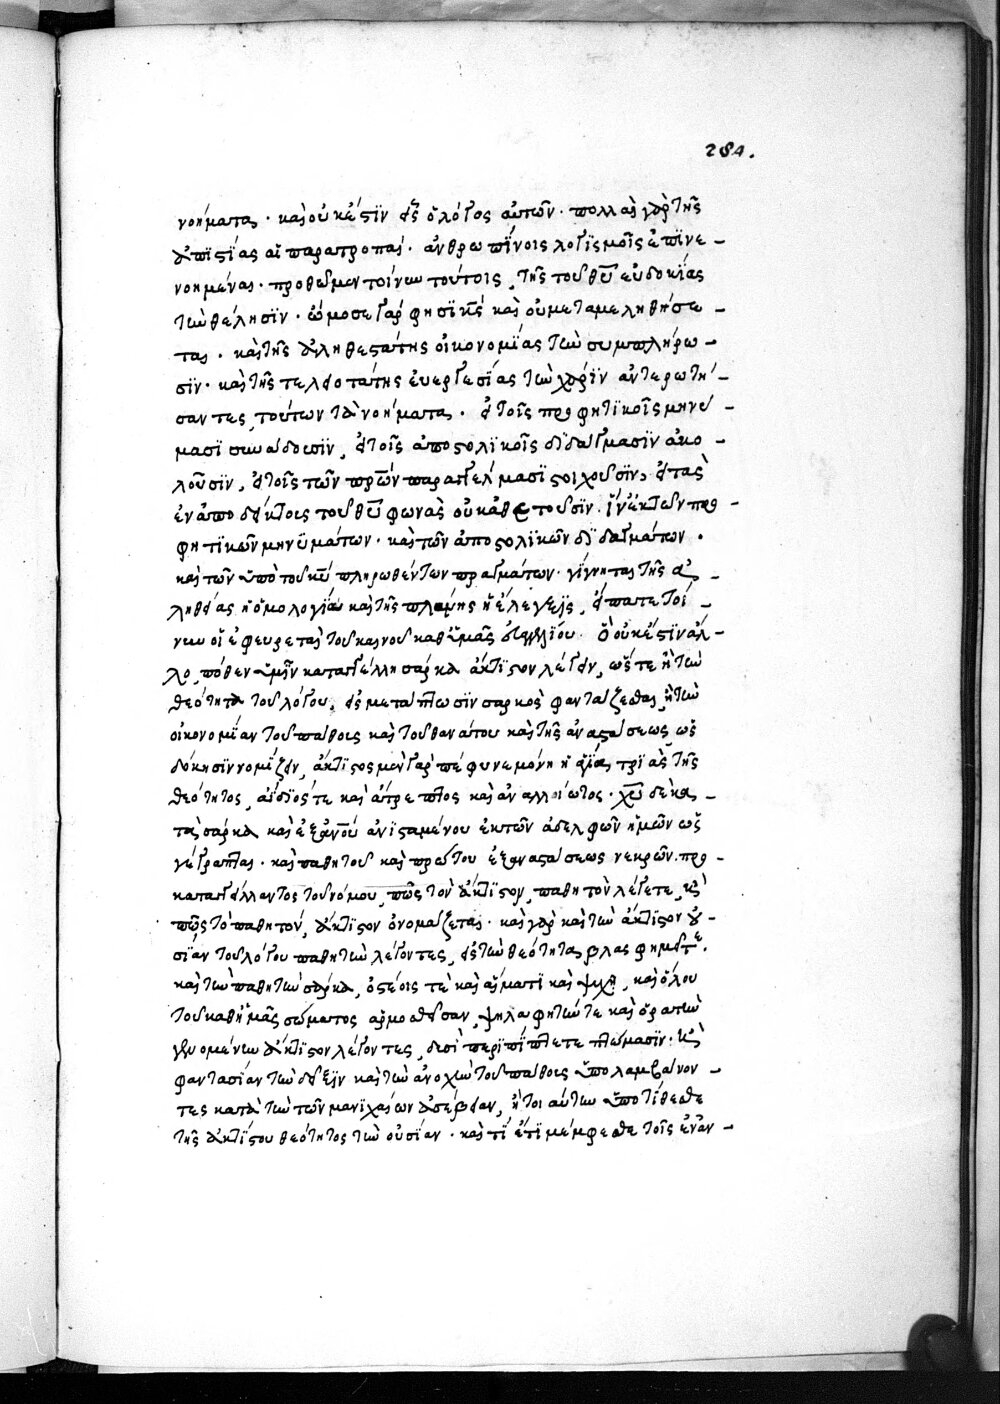 284.
νοήματα, · καὶ οὐκ ἔστιν εἷς ὁ λόγος αὐτῶν · πολλαὶ γὰρ τῆς
ἀπιστίας αἱ παρατροπαί · ἀνθρωπίνοις λογισμοῖς ἐπινε-
νοημέναι · προθῶμεν τοίνυν τούτοις, τῆς τοῦ θυ εὐδοκίας
τὼ θέλησιν · ὤμοσε γάρ φησι κς καὶ οὐ μεταμεληθήσε-
ται · καὶ τῆς ἀληθεστάτης οἰκονομίας τὼ συμπλήρω-
σιν · καὶ τῆς τελειοτάτης εὐεργεσίας τὼ χάριν ἀντερωτή-
σαντες, τούτων τὰ νοήματα · εἰ τοῖς προφητικοῖς μηνύ-
μασι συνάδουσιν, εἰ τοῖς ἀποστολικοῖς διδάγμασιν ἀκο-
λοῦσιν, εἰ τοῖς τῶν πρων παραγγέλμασι στοιχοῦσιν, εἰ τὰς
ἐναποδείκτοις τοῦ θυ φωνὰς οὐκ ἀθετοῦσιν · ἵν' ἐκ τῶν προ-
φητικῶν μηνυμάτων · καὶ τῶν ἀποστολικῶν διδαγμάτων ·
καὶ τῶν ὑπὸ τοῦ κυ πληρωθέντων πραγμάτων · γίγνηται τῆς ἀ-
ληθείας ἡ ὁμολογία καὶ τῆς πλάνης ἡ ἔλεγξις, εἴπατε τοί-
νυν οἱ ἐφευρεταὶ τοῦ καινοῦ καθ' ὑμᾶς εὐαγγελίου · ὃ οὐκ ἔστιν ἄλ-
λο, πόθεν ὑμῖν καταγγέλλη σάρκα ἄκτιστον λέγειν, ὥστε ἢ τὼ
θεότητα τοῦ λόγου, εἰς μετάπτωσιν σαρκὸς φαντάζεσθαι, ἢ τὼ
οἰκονομίαν τοῦ πάθους καὶ τοῦ θανάτου καὶ τῆς ἀναστάσεως, ὡς
δόκησιν νομίζειν, ἄκτιστος μὲν γὰρ πέφυκε μόνη ἡ ἁγία, τριὰς τῆς
θεότητος, ἀίδιός τε καὶ ἄτρεπτος καὶ ἀναλλοίωτος · χυ δὲ κα-
τὰ σάρκα καὶ ἐξ ἀνου ἀνισταμένου ἐκ τῶν ἀδελφῶν ἡμῶν ὡς
γέγραπται · καὶ παθητοῦ καὶ πρώτου ἐξαναστάσεως νεκρῶν, προ-
καταγγείλαντος τοῦ νόμου, πῶς τὸν ἄκτιστον, παθητὸν λέγετε, καὶ
πῶς τὸ παθητόν, ἄκτιστον ὀνομάζεται · καὶ γὰρ καὶ τὼ ἄκτιστον οὐ-
σίαν τοῦ λόγου παθητὼ λέγοντες, εἰς τὼ θεότητα, βλασφημεῖτε ·
καὶ τὼ παθητὼ σάρκα, ὀστέοις τὲ καὶ αἵματι καὶ ψυχῇ, καὶ ὅλου
τοῦ καθ' ἡμᾶς σώματος ἁρμοσθεῖσαν, ψηλαφητώ τε καὶ ὁρατὼ
γενομένω ἄκτιστον λέγοντες, δυσὶ περιπίπτετε πτώμασιν · καὶ
φαντασίαν τὼ δεῖξιν καὶ τὼ ἀνοχὼ τοῦ πάθους ὑπολαμβάνον-
τες κατὰ τὼ τῶν μανιχαίων ἀσέβειαν, ἤτοι αὐτὼ ὑποτίθεσθε
τῆς ἀκτίστου θεότητος τὼ οὐσίαν · καὶ τί ἔτι μέμφεσθε τοῖς ἐναν-